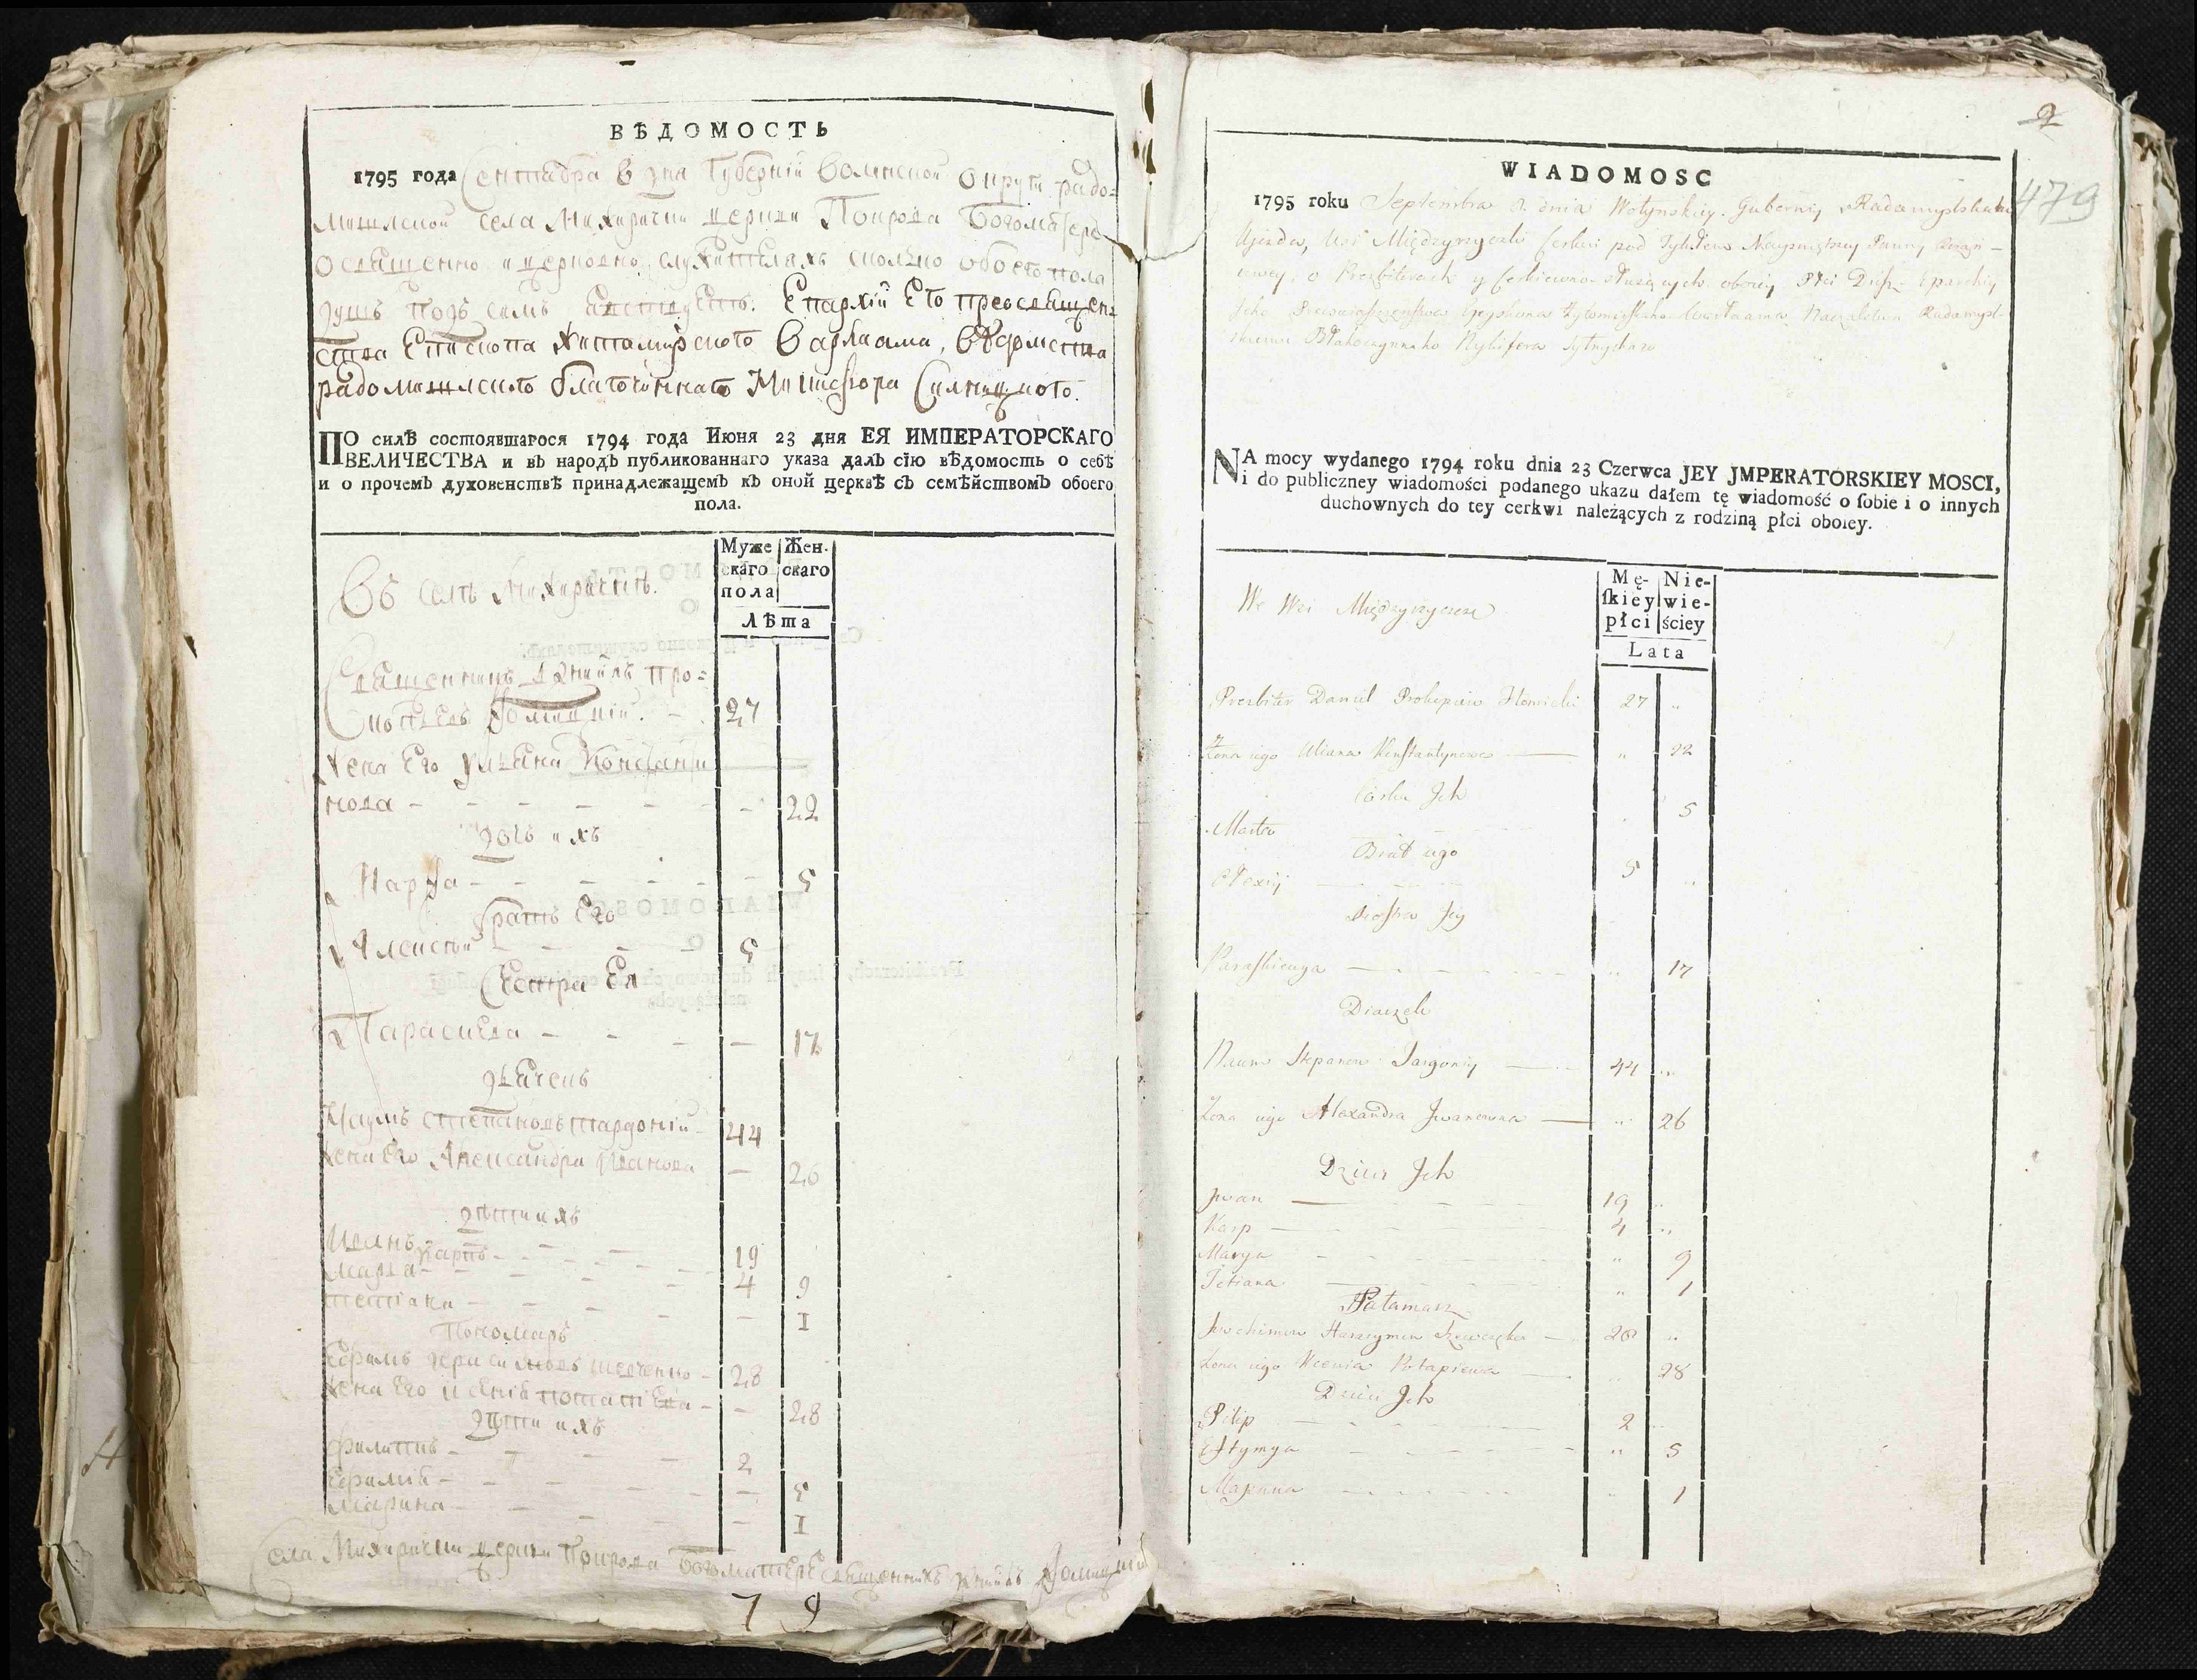 ВѢДОМОСТЬ
1795 года Сентабра 6 дна Губерніи Волинской Округи радо=
мишлской села Межирички церкви Покрова Богоматере
о священно и церковно служителахъ сколко обоего пола
душъ подъ симъ Епархіи Его преосвящен=
ства Епископа Житомирского Варлаама, вѣдомства
радомишлского благочиннаго Никифора Силницкого.
ПО силѣ состоявшагося 1794 года Июня 23 дня ЕЯ ИМПЕРАТОРСКАГО
ВЕЛИЧЕСТВА и въ народъ публикованнаго указа далъ сїю вѣдомость о себѣ
и о прочемъ духовенствѣ принадлежащемъ къ оной церквѣ съ семѣйствомъ обоего
пола.
Муже Жен.
скаго скаго
пола
Лѣта
Въ селѣ Межиричкѣ.
Священникъ Даниилъ Про=
27
Жена Его Улиана Константи
нова - - - - - - 22
Дочь ихъ
Марфа - - - - - - 5
братъ Его
Алексѣй - - - - 5
Сестра Ея
Параскева - - - - 17
Дячекъ
Наумъ Степановъ 44
жена Его Александра Иванова - 26
дѣти ихъ
Иванъ - - - - 19
Карпъ - - - - 4
Мария - - - - 9
тетіана - - - - 1
Пономарь
Ефимъ Герасимовъ Шевченко - 28
жена Его Ксенія потапіева - - 28
Дѣти ихъ
Филиппъ - - - 2
Ефимія - - - - 5
Марина - - - - 1
Села Межирички церкви Покрова Богоматере священникъ
7 9
2
479
WIADOMOSC
1795 roku Septembra 6. dnia Wołynskiey Gubernij Radamyslskaho
Ujezdu, Wsi Międzyrzyczki Cerkwi pod Tytułem Nayswiętszey Panny
o Prezbiterach y Cerkiewno-służących oboiey Płci Eparchij
Jeho Episkopa Żytomirskaho Warłaama Radamysl-
skiemu Błahoczynnaho Nykifora Sylnyckaho
NA mocy wydanego 1794 roku dnia 23 Czerwca JEY JMPERATORSKIEY MOSCI,
i do publiczney wiadomości podanego ukazu dałem tę wiadomość o ſobie i o innych
duchownych do tey cerkwi należących z rodziną płci oboiey.
Mę- Nie-
ſkiey wie-
płci ściey
Lata
We Wsi Międzyrzyczce
Prezbiter Daniel 27 "
Żona iego Uliana Konstantynowa " 22
Córka Jch
Marta " 5
Brat iego
Alexij 5 "
Siostra Jey
Paraskiewya - - - - " 17
Diaczek
Naum Stepanow 44 "
Żona iego Alexandra Jwanowna " 26
Dzieci Jch
Jwan - - - - 19 "
Karp - - - - 4 "
Marya - - - - " 9
Tetiana " 1
Pałamarz
28 "
Żona iego Xienia Potapiewa " 28
Dzieci Jch
Pilip - - - - 2 "
Eftymya - - - - " 5
Maryna - - - - " 1